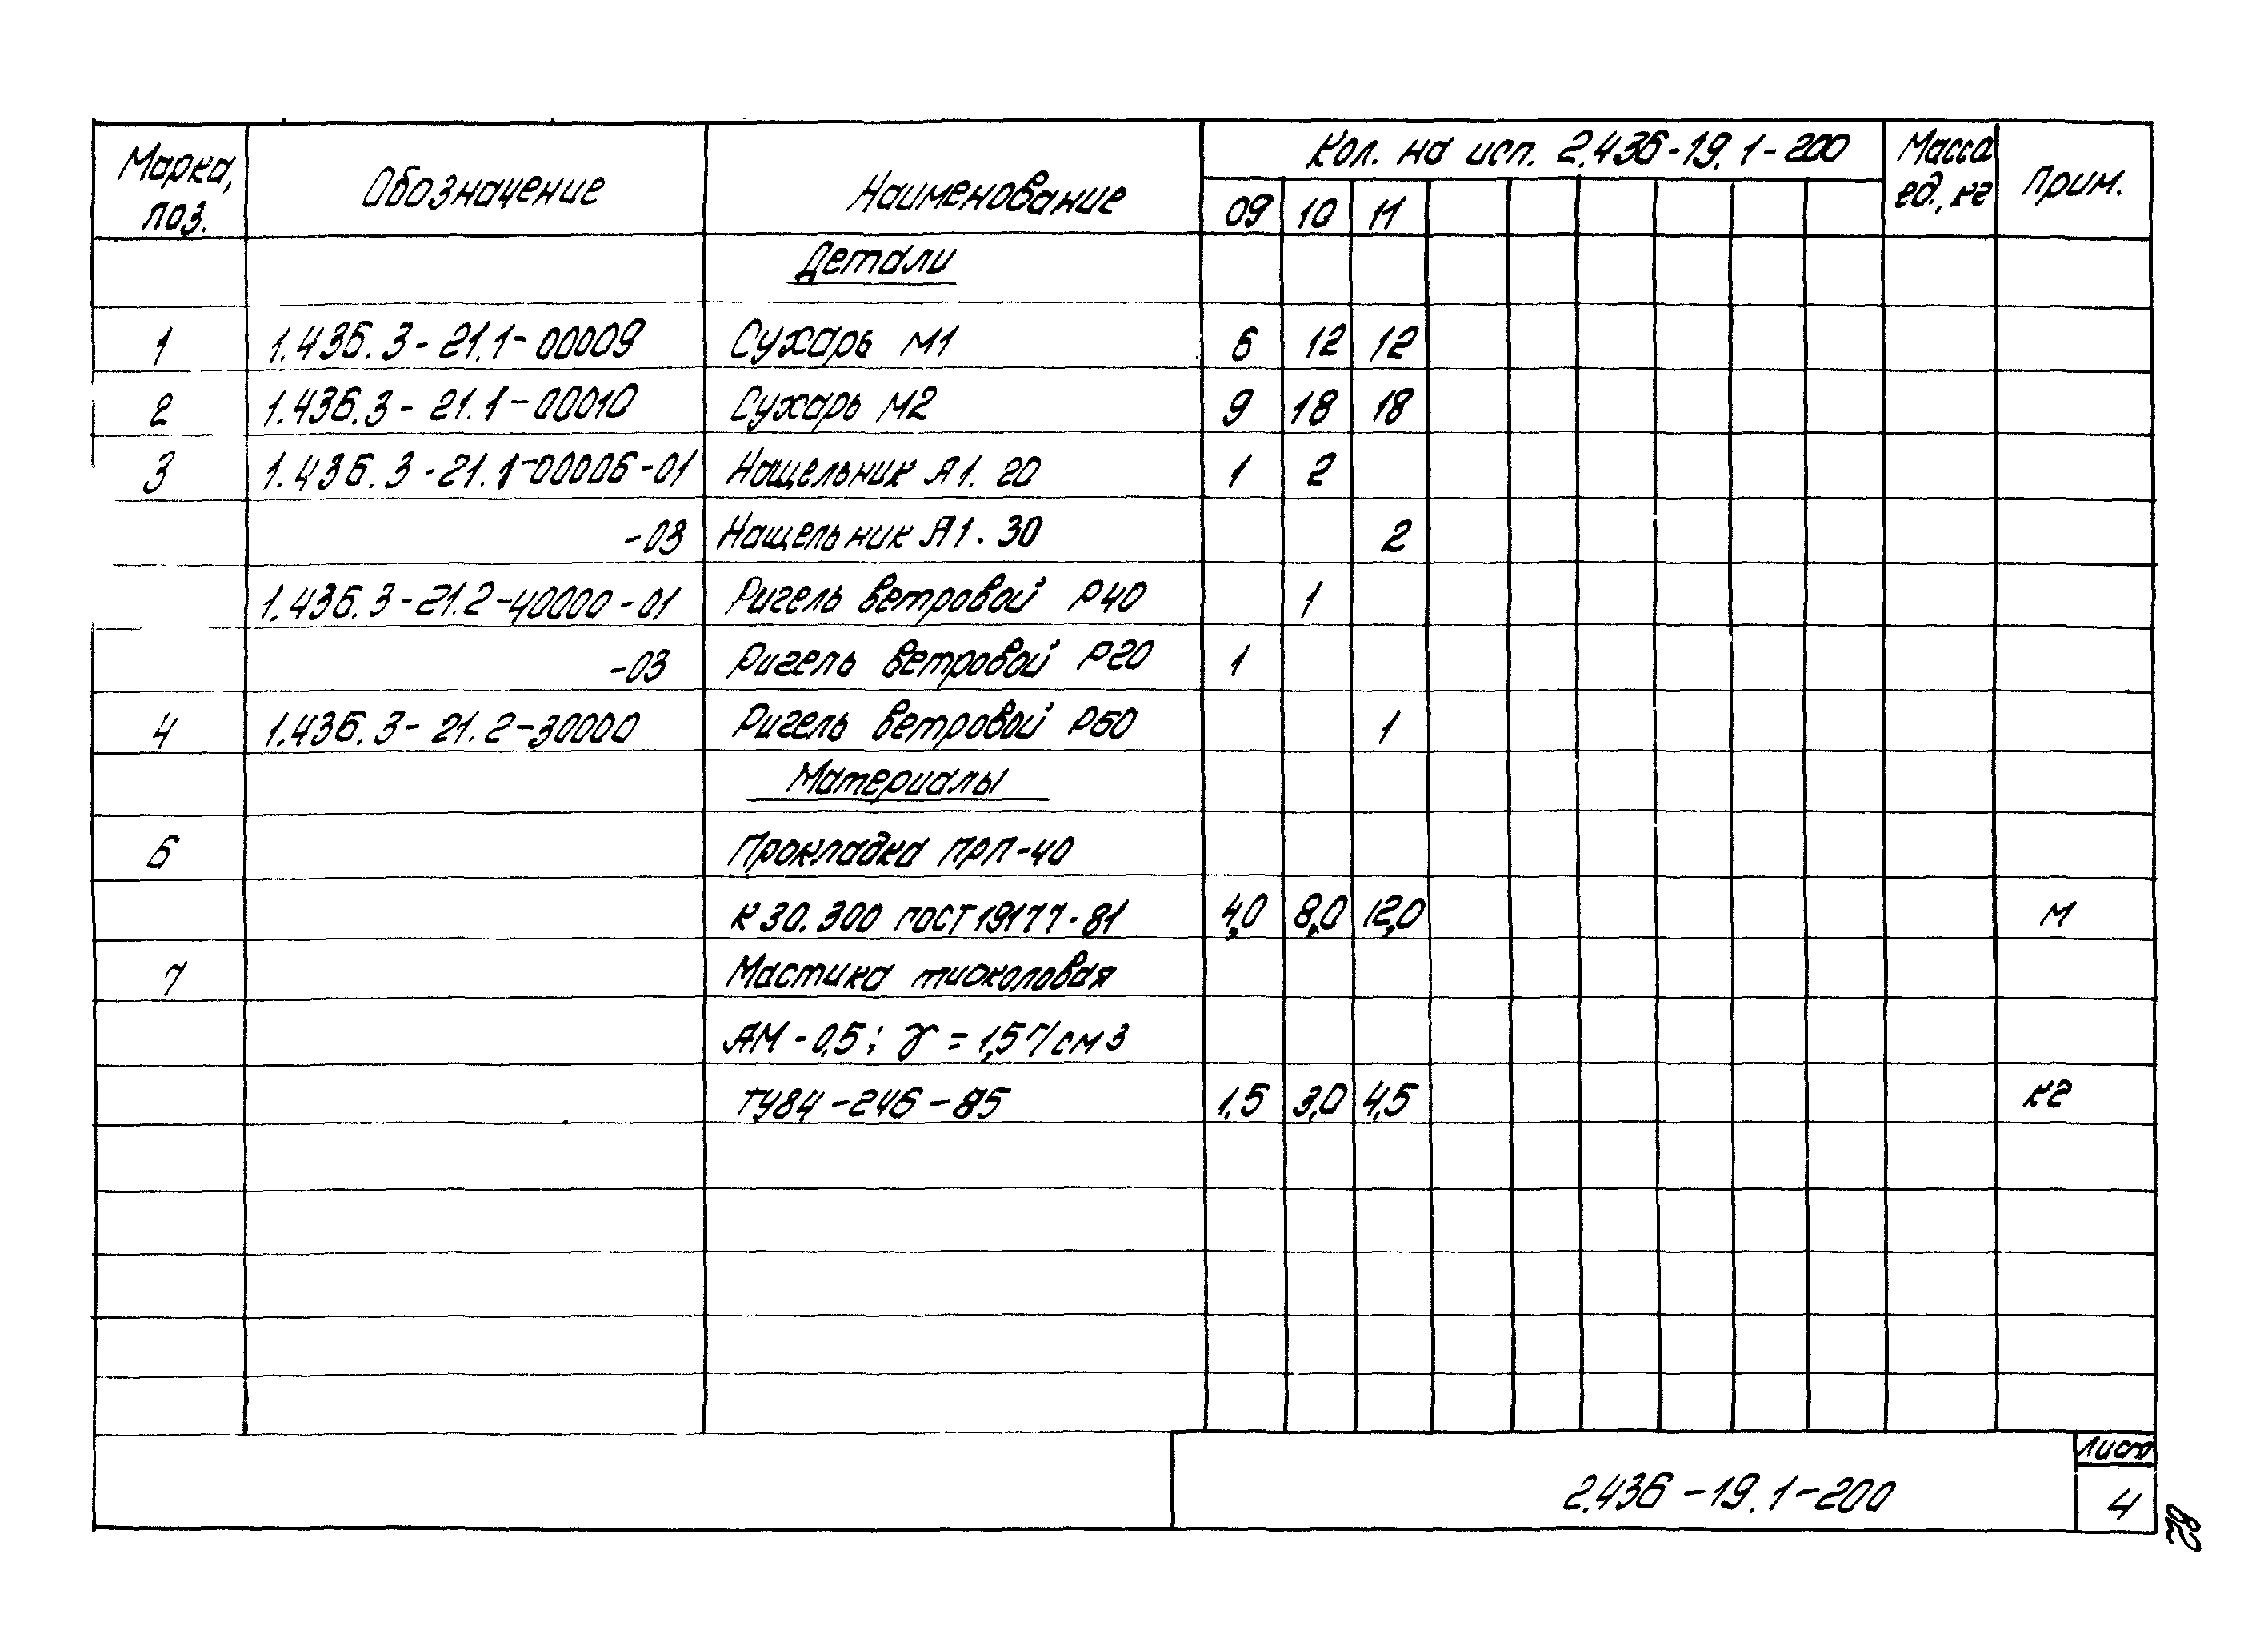 Марка, поз. Обозначение Наименование Кол. на исп. 2.436-19.1-200 Масса ед., кг Прим.
09 10 11
Детали
1 1.436.3-21.1-00009 Сухарь М1 6 12 12
2 1.436.3-21.1-00010 Сухарь М2 9 18 18
3 1.436.3-21.1-00006-01 Нащельник Я1.20 1 2
-03 Нащельник Я1.30 2
1.436.3-21.2-40000-01 Ригель ветровой Р40 1
-03 Ригель ветровой Р20 1
4 1.436.3-21.2-30000 Ригель ветровой Р60 1
Материалы
6 Прокладка ПРП-40
К30.300 ГОСТ 19177-81 4,0 8,0 12,0 м
7 Мастика тиоколовая
АМ-0,5; γ = 1,5 г/см3
ТУ84-246-85 1,5 3,0 4,5 кг
2.436-19.1-200 Лист 4